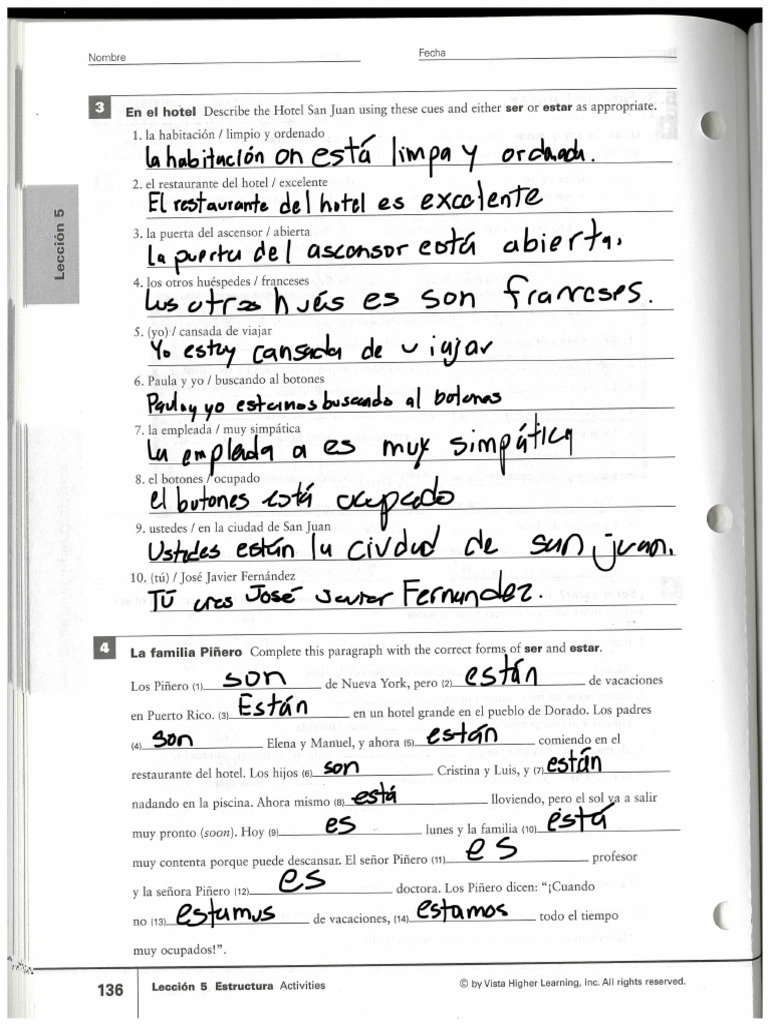 Nombre
Fecha
3 En el hotel Describe the Hotel San Juan using these cues and either ser or estar as appropriate.
1. la habitación / limpio y ordenado
la habitación on está limpa y
2. el restaurante del hotel / excelente
El restaurante del hotel es excelente
3. la puerta del ascensor / abierta
la puerta del asconsor está abierta.
4. los otros huéspedes / franceses
Lus otros hués es son franceses.
5. (yo) / cansada de viajar
Yo estuy cansada de viajar
6. Paula y yo / buscando al botones
Paula y yo estamos buscando al botenas
7. la empleada / muy simpática
La empleada a es muy simpática
8. el botones / ocupado
el butones está ocupado
9. ustedes / en la ciudad de San Juan
Ustedes están la ciudad de san juan.
10. (tú) / José Javier Fernández
TÚ eres José Javier Fernundez.
Lección 5
4 La familia Piñero Complete this paragraph with the correct forms of ser and estar.
Los Piñero (1) son de Nueva York, pero (2) están de vacaciones
en Puerto Rico. (3) Están en un hotel grande en el pueblo de Dorado. Los padres
(4) son Elena y Manuel, y ahora (5) están comiendo en el
restaurante del hotel. Los hijos (6) son Cristina y Luis, y (7) están
nadando en la piscina. Ahora mismo (8) está lloviendo, pero el sol va a salir
muy pronto (soon). Hoy (9) es lunes y la familia (10) está
muy contenta porque puede descansar. El señor Piñero (11) es profesor
y la señora Piñero (12) es doctora. Los Piñero dicen: “¡Cuando
no (13) estamus de vacaciones, (14) estamos todo el tiempo
muy ocupados!”.
136 Lección 5 Estructura Activities
© by Vista Higher Learning, Inc. All rights reserved.